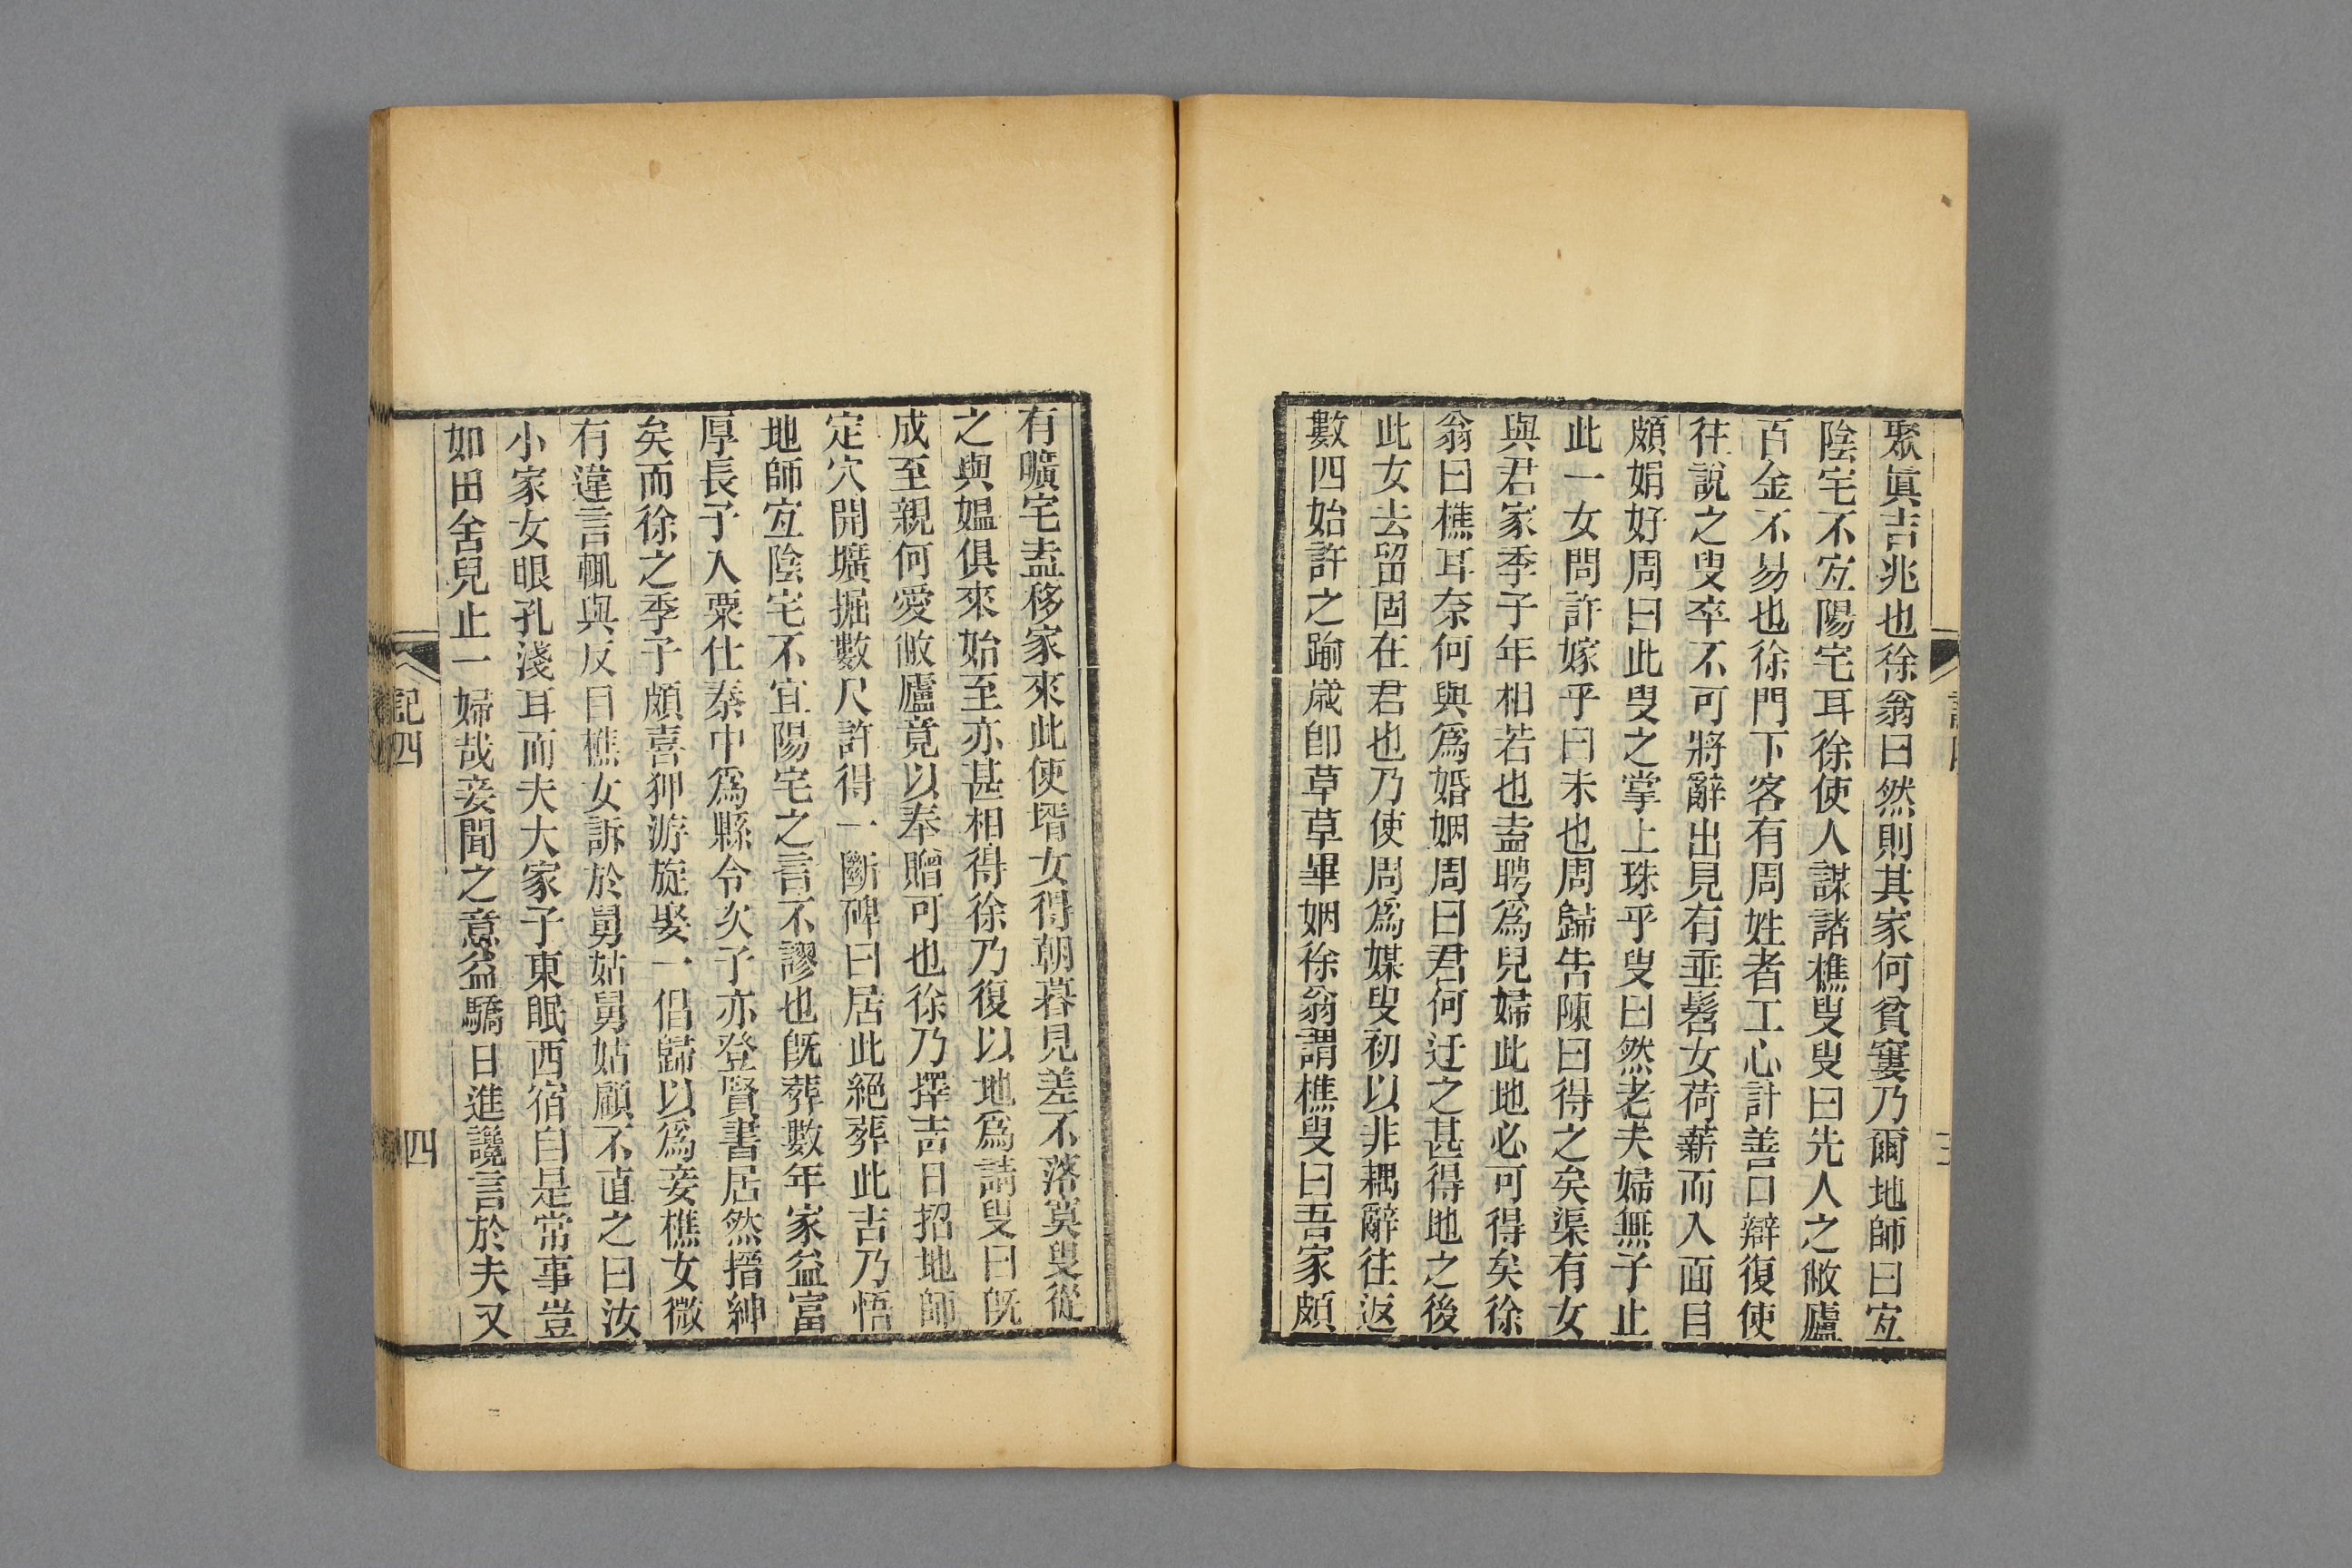 聚眞吉兆也徐翁曰然則其家何貧窶乃爾地師曰宐
陰宅不宐陽宅耳徐使人謀諸樵叟叟曰先人之敝廬
百金不易也徐門下客有周姓者工心計善口辯復使
往說之叟卒不可將辭出見有垂髫女荷薪而入面目
頗娟好周曰此叟之掌上珠乎叟曰然老夫婦無子止
此一女問許嫁乎曰未也周歸告陳曰得之矣渠有女
與君家季子年相若也盍聘爲兒婦此地必可得矣徐
翁曰樵耳奈何與爲婚姻周曰君何迂之甚得地之後
此女去留固在君也乃使周爲媒叟初以非耦辭往返
數四始許之踰歲卽草草畢姻徐翁謂樵叟曰吾家頗
有曠宅盍移家來此使壻女得朝暮見差不落寞叟從
之與媼俱來始至亦甚相得徐乃復以地爲請叟曰旣
成至親何愛敝廬竟以奉贈可也徐乃擇吉日招地師
定穴開壙掘數尺許得一斷碑曰居此絕葬此吉乃悟
地師宐陰宅不宜陽宅之言不謬也旣葬數年家益富
厚長子入粟仕秦中爲縣令次子亦登賢書居然搢紳
矣而徐之季子頗喜狎游旋娶一倡歸以爲妾樵女微
有違言輒與反目樵女訴於舅姑舅姑顧不直之曰汝
小家女眼孔淺耳而夫大家子東眠西宿自是常事豈
如田舍兒止一婦哉妾聞之意益驕日進讒言於夫又
記四
四